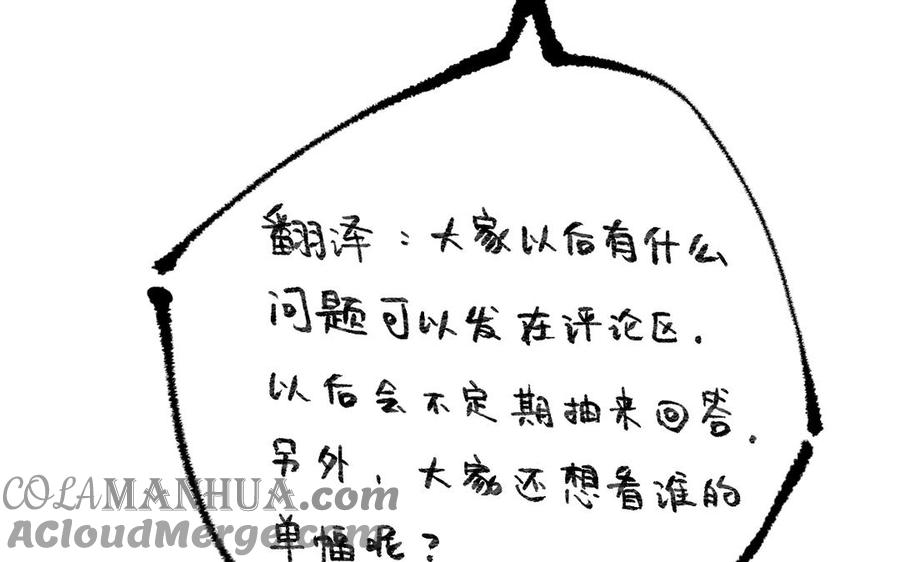 翻译：大家以后有什么
问题可以发在评论区.
以后会不定期抽来回答.
另外，大家还想看谁的
单幅呢？
COLAMANHUA.com
ACloudMerge.com